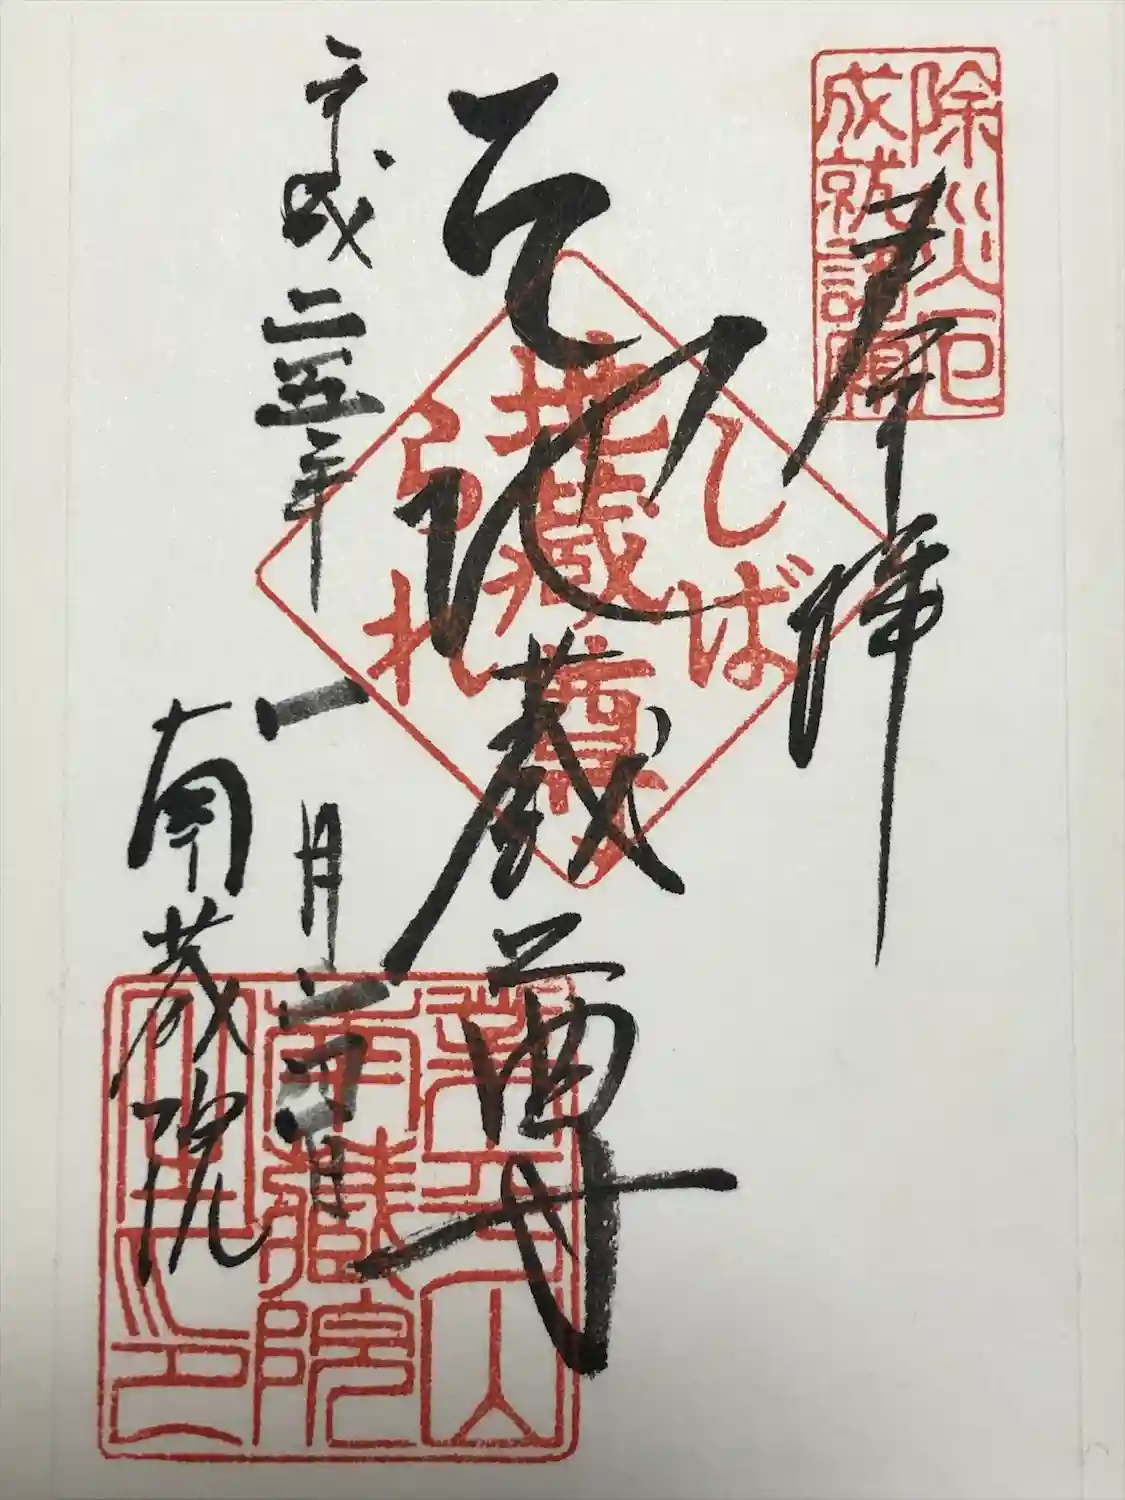 除災厄
成就諸願
奉拝
地蔵尊
しば
地蔵尊
られ
平成二五年一月
南蔵院
業平山
南蔵院
之印